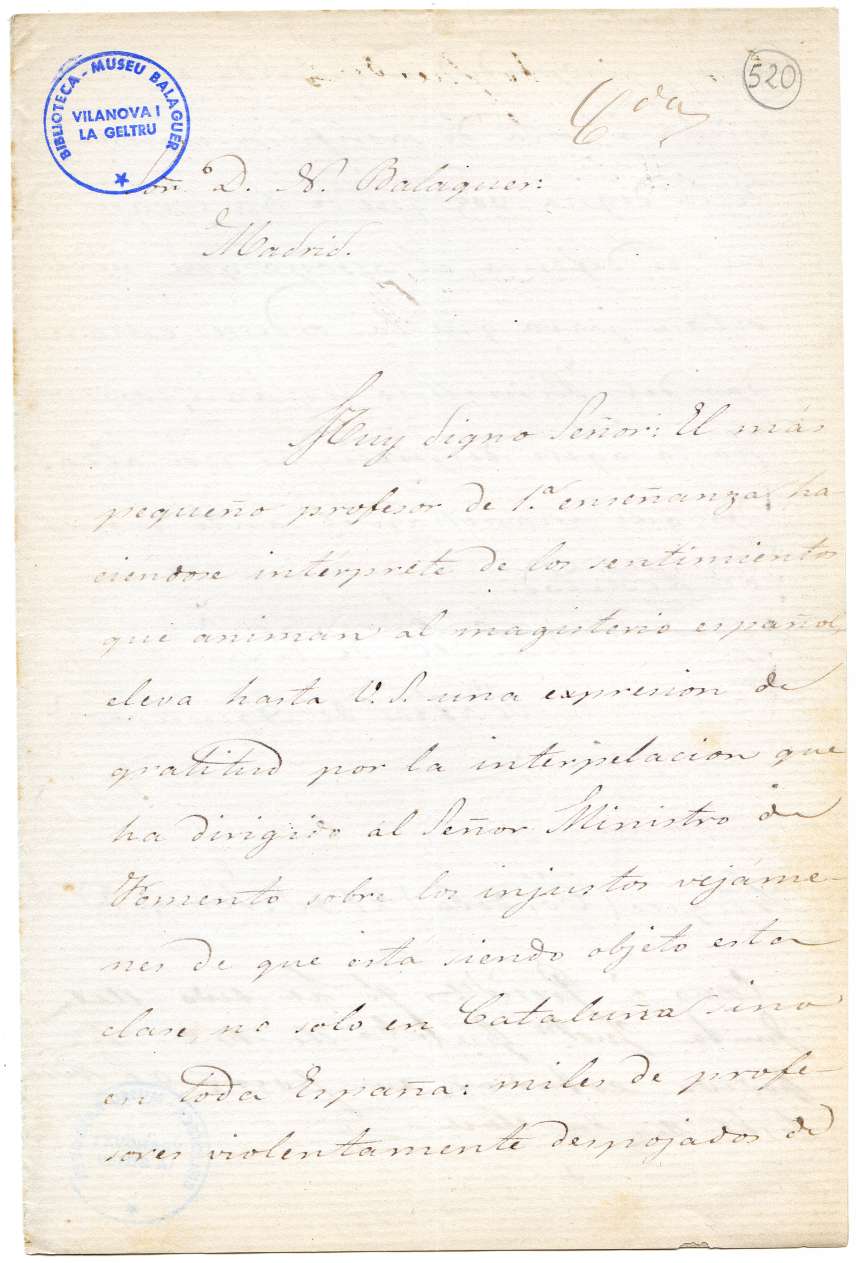 BIBLIOTECA - MUSEU BALAGUER
VILANOVA I
LA GELTRU
520
Cda
Señ.º D. V. Balaguer:
Madrid.
Muy digno Señor: El más
pequeño profesor de 1.ª enseñanza ha-
ciendose interprete de los sentimientos
que animan al magisterio español,
eleva hasta V. S. una expresion de
gratitud por la interpelacion que
ha dirigido al Señor Ministro de
Fomento sobre los injustos vejáme-
nes de que está siendo objeto esta
clase, no solo en Cataluña sino
en toda España: miles de profe-
sores violentamente despojados de